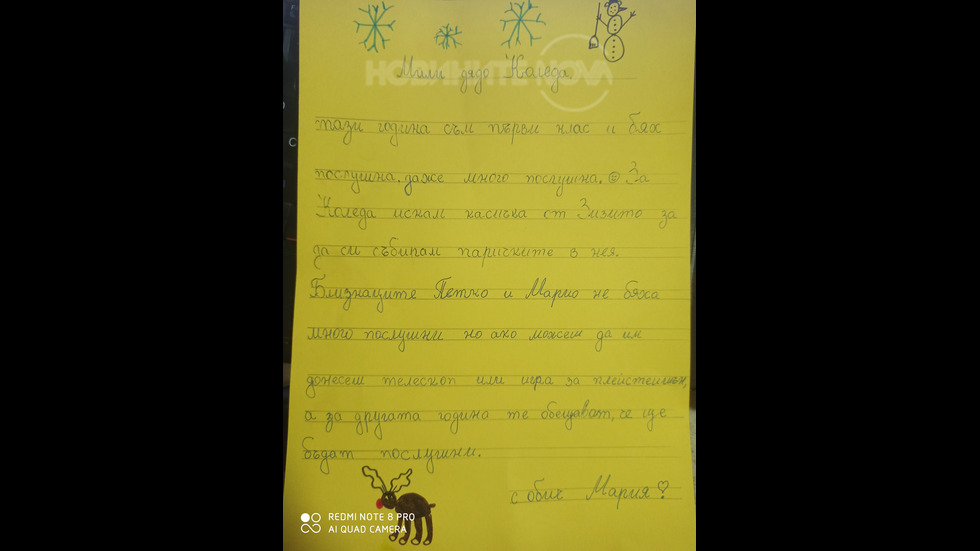 НОВИНИТЕ NOVA
Мили дядо Коледа,
тази година съм първи клас и бях
послушна, даже много послушна.☺ За
Коледа искам касичка от Зизито за
да си събирам паричките в нея.
Близнаците Петко и Марио не бяха
много послушни но ако можеш да им
донесеш телескоп или игра за плейстейшън,
а за другата година те обещават, че ще
бъдат послушни.
с обич Мария♡
REDMI NOTE 8 PRO
AI QUAD CAMERA